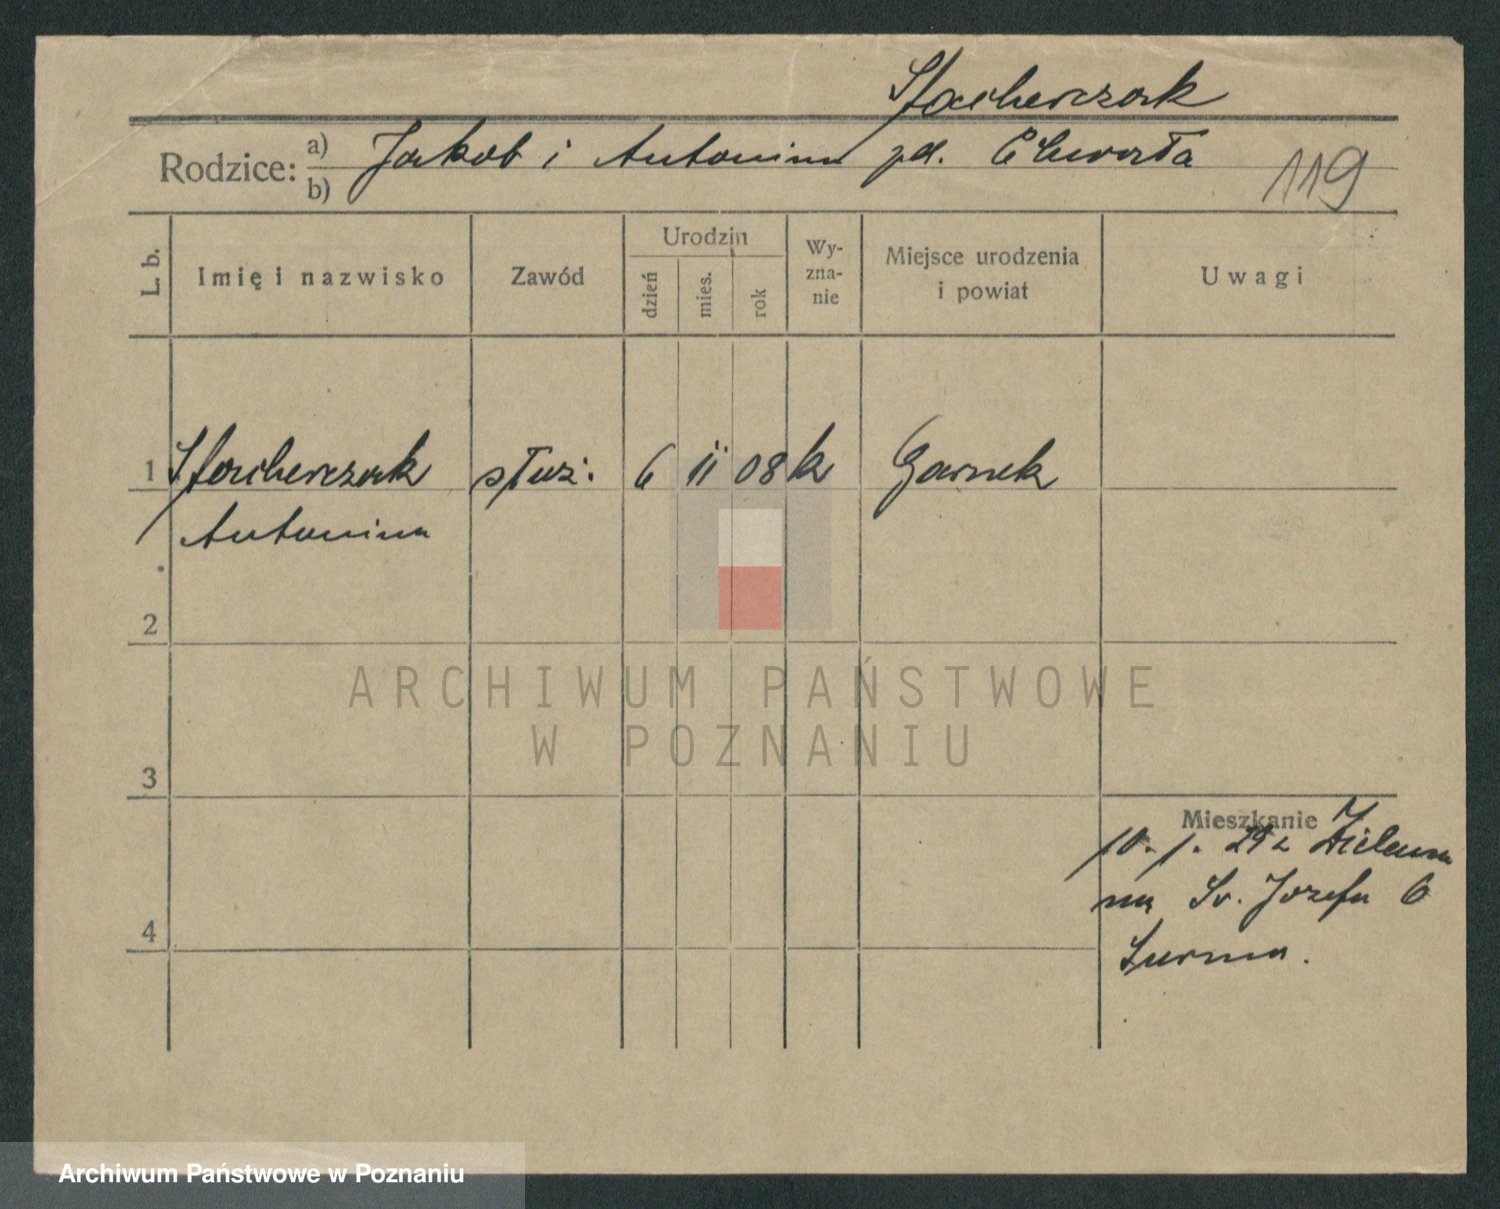 Stachowczak
Rodzice: a) Jakob i Antonina zd. Chwała
b)
119
L. b. Imię i nazwisko Zawód Urodzin dzień mies. rok Wy-zna-nie Miejsce urodzenia i powiat Uwagi
1 Antonina służ. 6 II 08 k
2
3
4
Mieszkanie
10. 1. 29 z
na Św. Józefa 6
ARCHIWUM PAŃSTWOWE
W POZNANIU
Archiwum Państwowe w Poznaniu